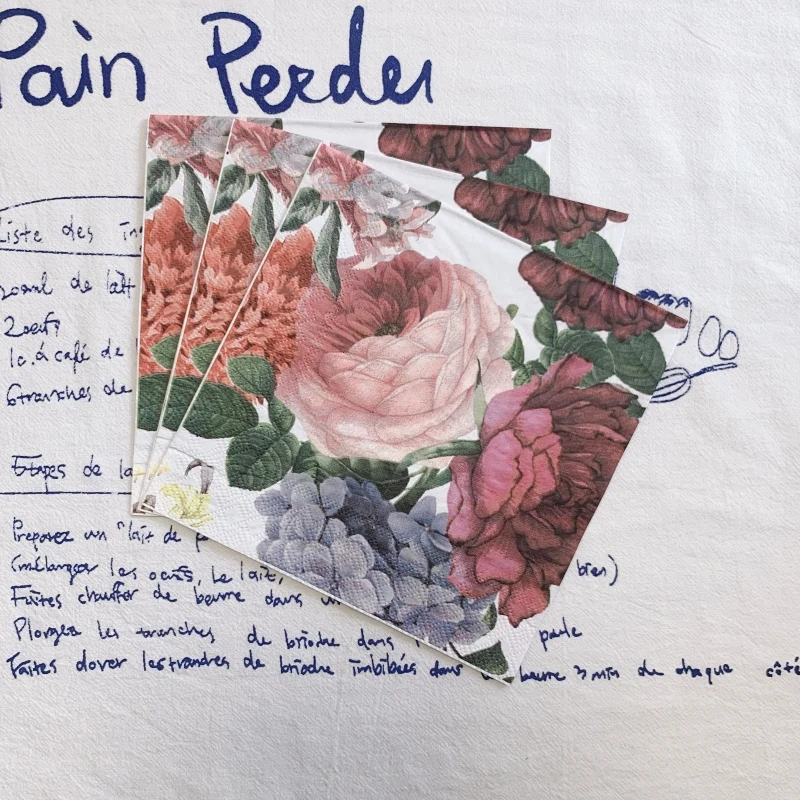 Pain Perdu
Liste des in
200ml de lait
2 oeufs
1c. à café de
6 tranches de
Etapes de la
Préparez un "lait de p
(mélanger les oeufs, le lait, bien)
Faites chauffer de beurre dans un
Plongez les tranches de brioche dans poule
Faites dorer les tranches de brioche imbibées dans beurre 3 min de chaque côté